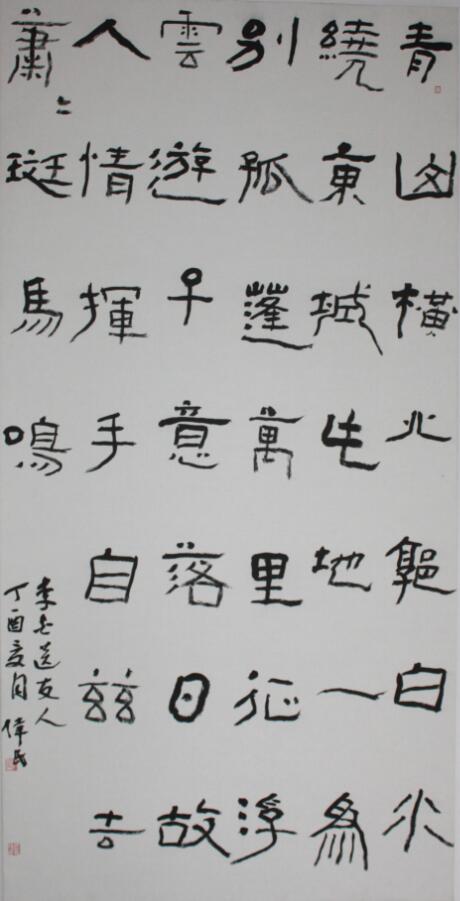 青山橫北郭白水
繞東城此地一為
別孤蓬萬里征浮
雲遊子意落日故
人情揮手自茲去
蕭〻班馬鳴
李白送友人
丁酉夏月偉民